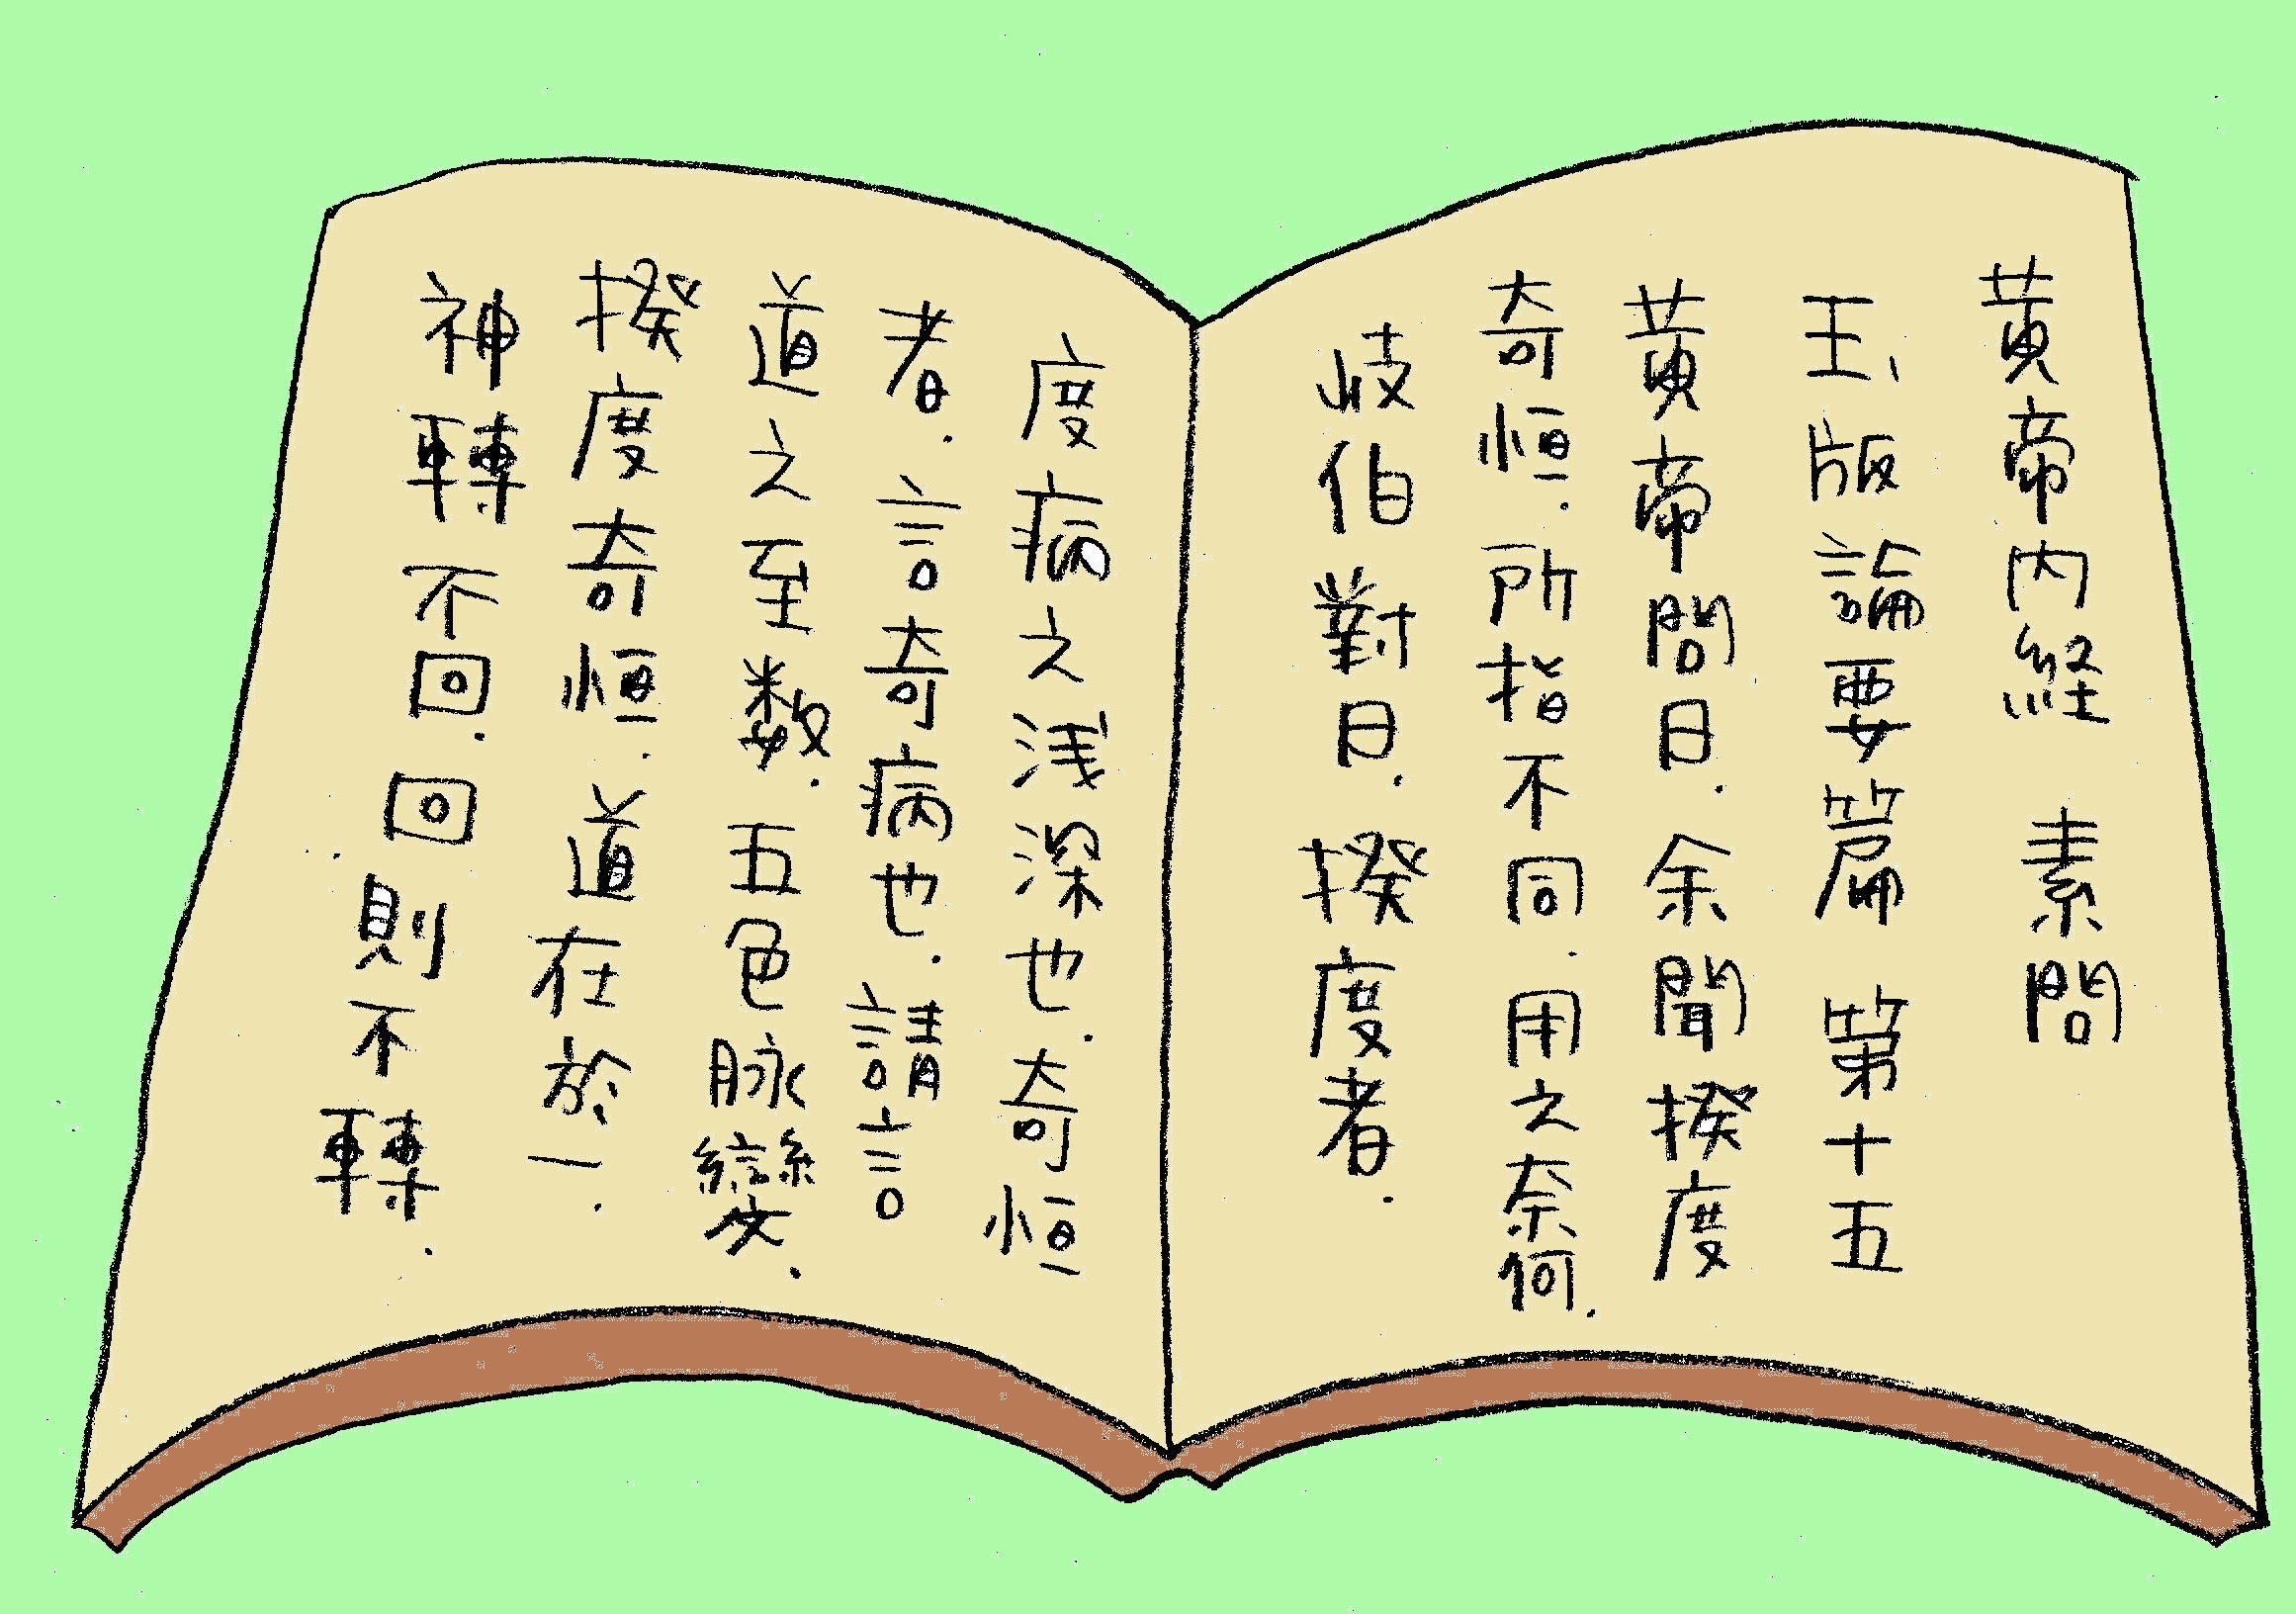 黄帝内経　素問
玉版論要篇　第十五
黄帝問曰.余聞揆度
奇恒.所指不同.用之奈何.
岐伯對曰.揆度者.
度病之浅深也.奇恒
者.言奇病也.請言
道之至数.五色脉變.
揆度奇恒.道在於一.
神轉不回.回則不轉.